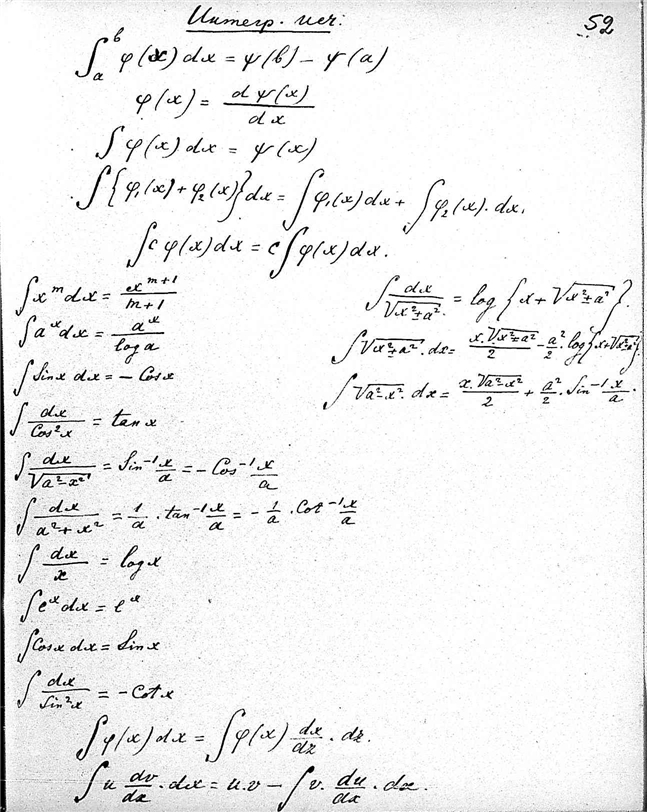 Интегр. исч: 52
∫ₐᵇ φ(x) dx = ψ(b) − ψ(a)
φ(x) = dψ(x)/dx
∫ φ(x) dx = ψ(x)
∫{φ₁(x) + φ₂(x)}dx = ∫φ₁(x) dx + ∫φ₂(x). dx.
∫c φ(x) dx = c∫φ(x) dx.
∫xᵐ dx = xᵐ⁺¹/m+1
∫aˣ dx = aˣ/log a
∫Sin x dx = − Cos x
∫dx/Cos²x = tan x
∫dx/√a²−x² = Sin⁻¹ x/a = − Cos⁻¹ x/a
∫dx/a²+x² = 1/a . tan⁻¹ x/a = − 1/a . Cot⁻¹ x/a
∫dx/x = log x
∫eˣ dx = eˣ
∫Cos x dx = Sin x
∫dx/Sin²x = − Cot x
∫dx/√x²±a². = log {x + √x²±a²}.
∫√x²±a². dx = x.√x²±a²/2 − a²/2. log{x+√x²±a²}.
∫√a²−x². dx = x.√a²−x²/2 + a²/2. Sin⁻¹ x/a.
∫φ(x) dx = ∫φ(x) dx/dz . dz.
∫u dv/dx . dx = u.v − ∫v. du/dx . dx.